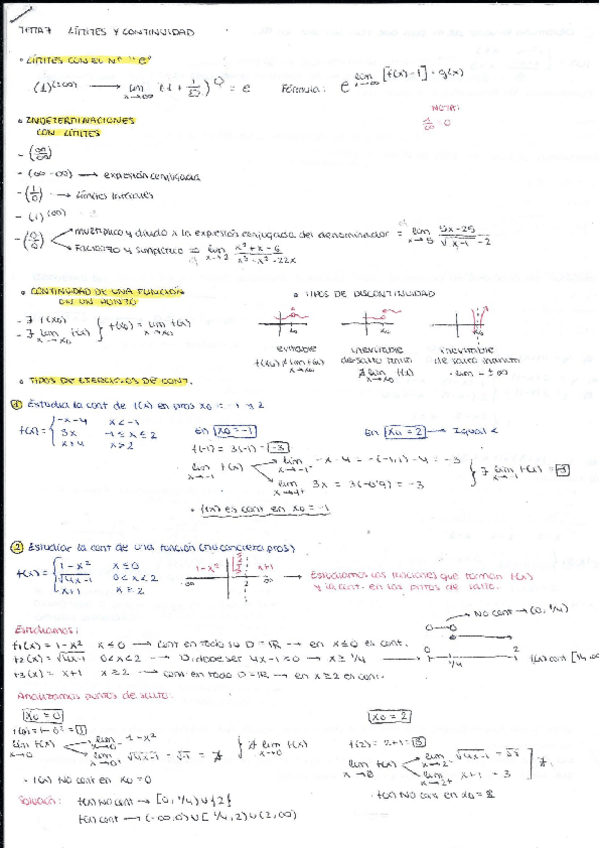 TEMA 7 LÍMITES Y CONTINUIDAD
• LÍMITES CON EL Nº "e"
(1)^(±∞) → lim x→∞ (1 + 1/□)^□ = e Fórmula: e^ lim x→∞ [f(x)-1]·g(x)
NOTA:
1/∞ = 0
• INDETERMINACIONES
CON LÍMITES
- (∞/∞)
- (∞-∞) → expresión conjugada
- (1/0) → Límites laterales
- (1)^(∞)
- (0/0) multiplico y divido x la expresión conjugada del denominador = lim x→5 5x-25 / √x-1 - 2
Factorizo y simplifico ⇒ lim x→2 x²+x-6 /
• CONTINUIDAD DE UNA FUNCIÓN
EN UN PUNTO
• TIPOS DE DISCONTINUIDAD
- ∃ f(x0)
- ∃ lim x→x0 f(x) } f(x0) = lim x→x0 f(x)
evitable inevitable inevitable
f(x0) ≠ lim x→x0 f(x) de salto finito de salto infinito
∄ lim x→x0 f(x) • lim = ±∞
• TIPOS DE EJERCICIOS DE CONT.
① Estudia la cont de f(x) en ptos x0 = -1 y 2
f(x) = { -x-4 x<-1
3x -1≤x≤2
x+4 x>2
En x0=-1 En x0=2 → Igual
f(-1) = 3(-1) = -3
lim x→-1 f(x) lim x→-1⁻ -x-4 = -(-1,1)-4 = -3
lim x→-1⁺ 3x = 3(-0'9) = -3 } ∃ lim x→-1 f(x) = -3
• f(x) es cont en x0 = -1
② Estudiar la cont de una función (no concreta ptos)
f(x) = { 1-x² x≤0
√4x-1 0<x<2
x+1 x≥2
1-x² x+1
-∞ 2 ∞
→ Estudiamos las funciones que forman f(x)
y la cont. en los puntos de salto.
→ NO cont → (0, 1/4)
Estudiamos:
f1(x) = 1-x² x≤0 → Cont en todo su D=ℝ → en x≤0 es cont.
f2(x) = √4x-1 0<x<2 → D: debe ser 4x-1≥0 → x≥1/4 → f(x) cont [1/4,
f3(x) = x+1 x≥2 → cont en todo D=ℝ → en x≥2 es cont.
Analizamos puntos de salto:
x0=0 x0=2
f(0) = 1-0² = 1
lim x→0 f(x) lim x→0⁻ 1-x²
lim x→0⁺ √4x-1 = √-1 = ∄ } ∄ lim x→0 f(x)
• f(x) NO cont en x0=0
f(2) = 2+1 = 3
lim lim x→2⁻ √4x-1 =
lim x→2⁺ x+1 = 3 ] ∄.
• f(x) NO cont en x0=2
Solución: f(x) NO cont → [0, 1/4) ∪ {2}
f(x) cont → (-∞,0) ∪ [1/4, 2) ∪ (2, ∞)